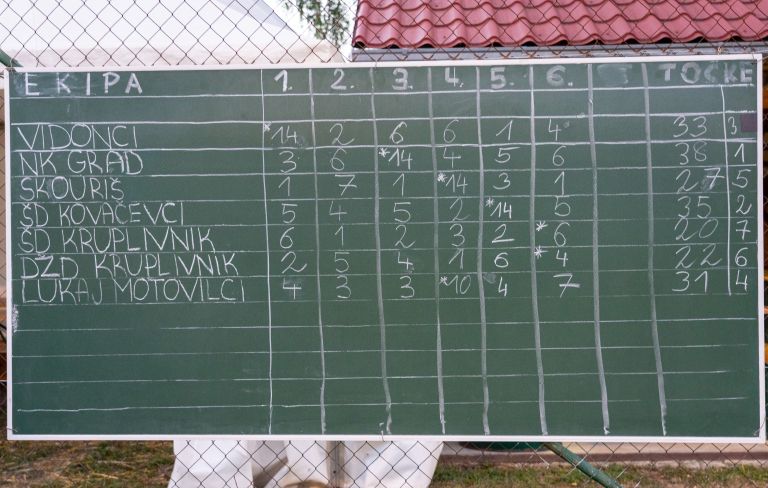 EKIPA 1. 2. 3. 4. 5. 6. TOČKE
VIDONCI *14 2 6 6 1 4 33 3
NK GRAD 3 6 *14 4 5 6 38 1
SKOURIŠ 1 7 1 *14 3 1 27 5
ŠD KOVAČEVCI 5 4 5 2 *14 5 35 2
ŠD KRUPLIVNIK 6 1 2 3 2 *6 20 7
DŽD KRUPLIVNIK 2 5 4 1 6 *4 22 6
LUKAJ MOTOVILCI 4 3 3 *10 4 7 31 4